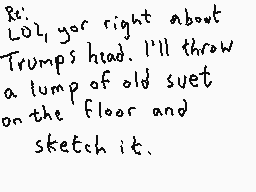 Re:
LOL, yor right about
Trumps head. I'll throw
a lump of old suet
on the floor and
sketch it.